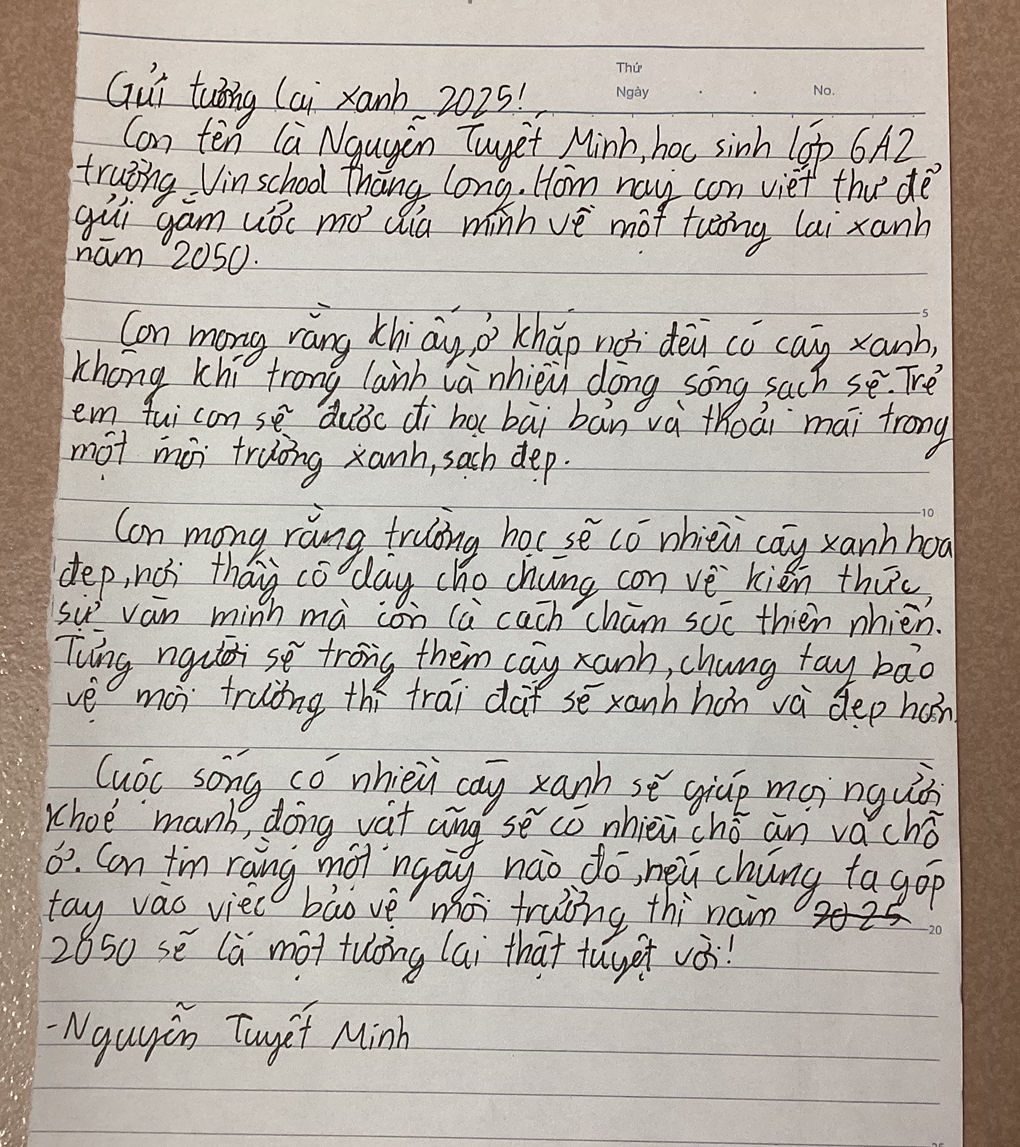 Thứ
Ngày . . No.
Gửi tương lai xanh 2025!
Con tên là Nguyễn Tuyết Minh, học sinh lớp 6A2
trường Vinschool Thăng Long. Hôm nay con viết thư để
gửi gắm ước mơ của mình về một tương lai xanh
năm 2050.
5
Con mong rằng khi ấy, ở khắp nơi đều có cây xanh,
không khí trong lành và nhiều dòng sông sạch sẽ. Trẻ
em tụi con sẽ được đi học bài bản và thoải mái trong
một môi trường xanh, sạch đẹp.
10
Con mong rằng trường học sẽ có nhiều cây xanh hoa
đẹp, nơi thầy cô dạy cho chúng con về kiến thức,
sự văn minh mà còn là cách chăm sóc thiên nhiên.
Từng người sẽ trồng thêm cây xanh, chung tay bảo
vệ môi trường thì trái đất sẽ xanh hơn và đẹp hơn.
Cuộc sống có nhiều cây xanh sẽ giúp mọi người
khoẻ mạnh, động vật cũng sẽ có nhiều chỗ ăn và chỗ
ở. Con tin rằng một ngày nào đó, nếu chúng ta góp
tay vào việc bảo vệ môi trường thì năm 2025
20
2050 sẽ là một tương lai thật tuyệt vời!
-Nguyễn Tuyết Minh